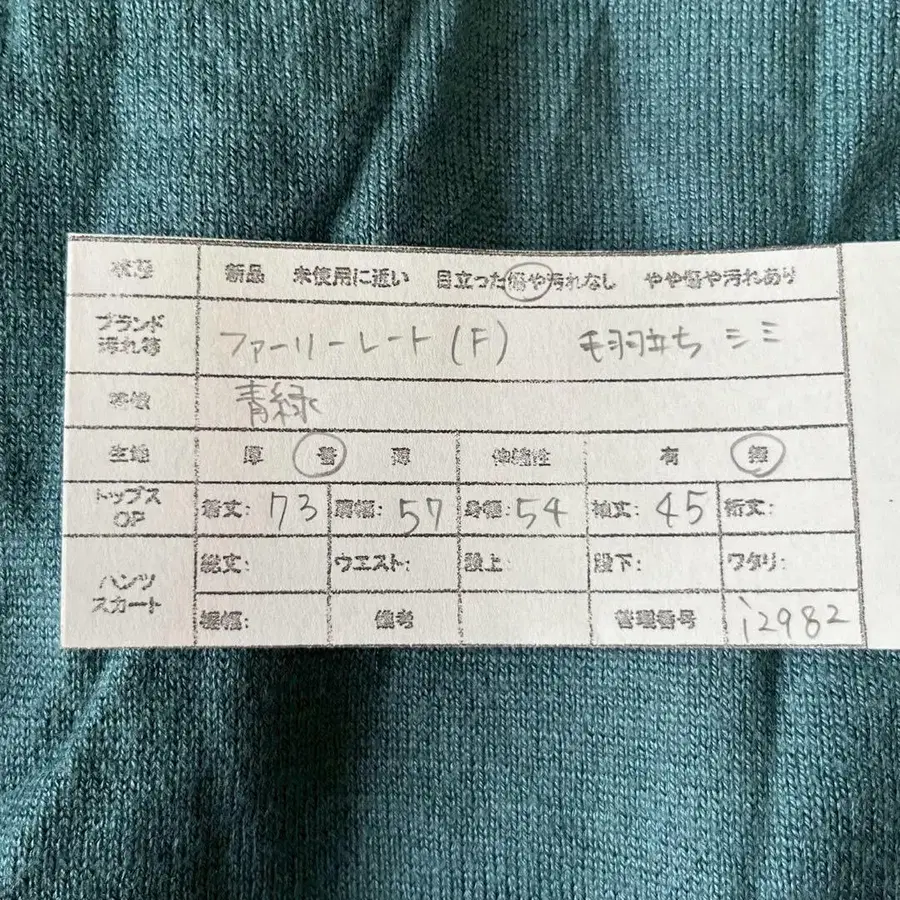 状態 新品 未使用に近い 目立った傷や汚れなし やや傷や汚れあり
ブランド
汚れ等
ファーリーレート(F) 毛羽立ち シミ
特徴 青緑
生地 厚 普 薄 伸縮性 有 無
トップス
OP
着丈: 73 肩幅: 57 身幅: 54 袖丈: 45 裄丈:
パンツ
スカート
総丈: ウエスト: 股上: 股下: ワタリ:
裾幅: 備考 管理番号 i2982